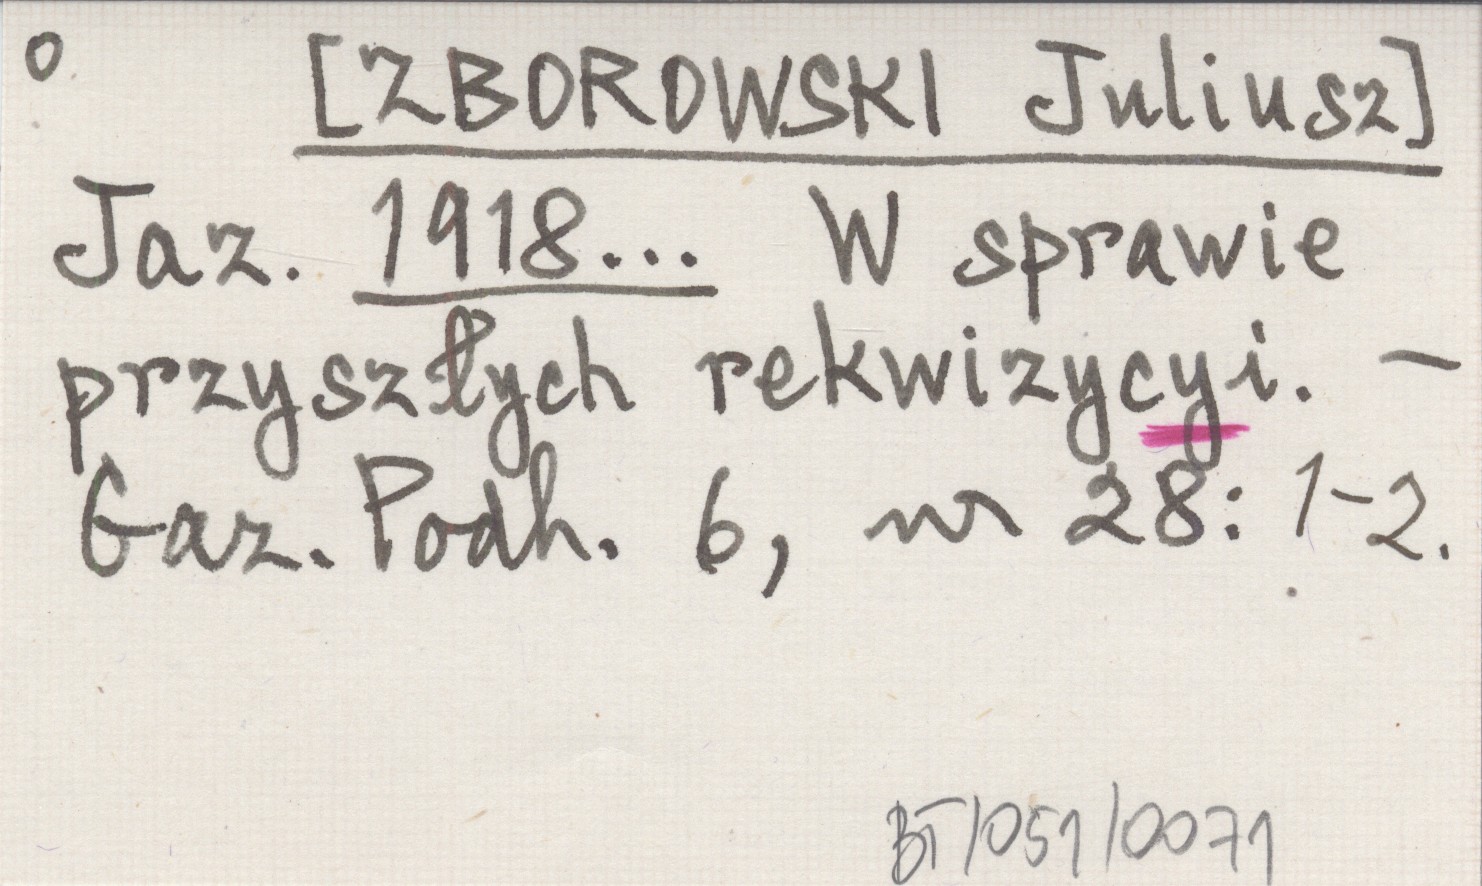 o [ZBOROWSKI Juliusz]
Jaz. 1918... W sprawie
przyszłych rekwizycyi. –
Gaz. Podh. 6, nr 28: 1-2.
BT/051/0071